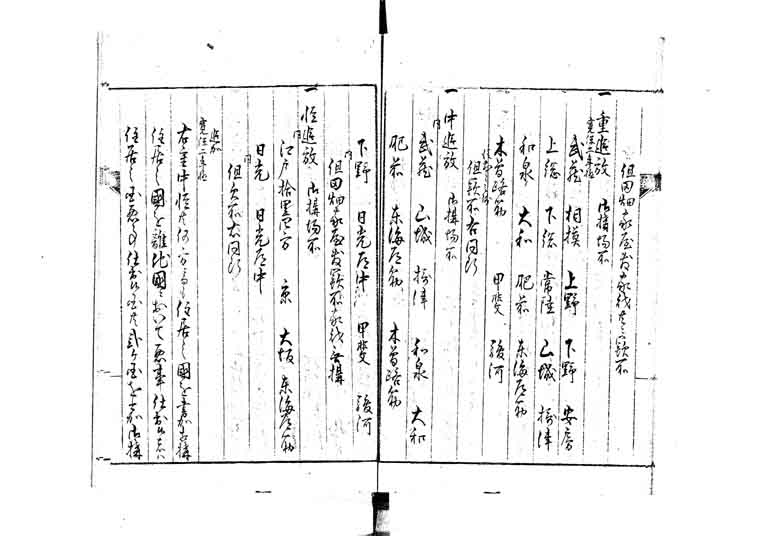 但田畑家屋敷家財共闕所
一重追放 御構場所
寛保二年極
武蔵 相模 上野 下野 安房
上総 下総 常陸 山城 摂津
和泉 大和 肥前 東海道筋
木曽路筋 甲斐 駿河
但闕所右同断
一中追放 御構場所
同
武蔵 山城 摂津 和泉 大和
肥前 東海道筋 木曽路筋
下野 日光道中 甲斐 駿河
同
但田畑家屋敷闕所家財無構
一軽追放 御構場所
同
江戸拾里四方 京 大坂 東海道筋
日光 日光道中
同
但欠所右同断
追加
寛保二年極
右重中軽共何方ニ而も住居之国を書加相構
住居之国を離他国ニおいて悪事仕出候者ハ
住居之国悪事仕出候国共弐ヶ国を書加御構